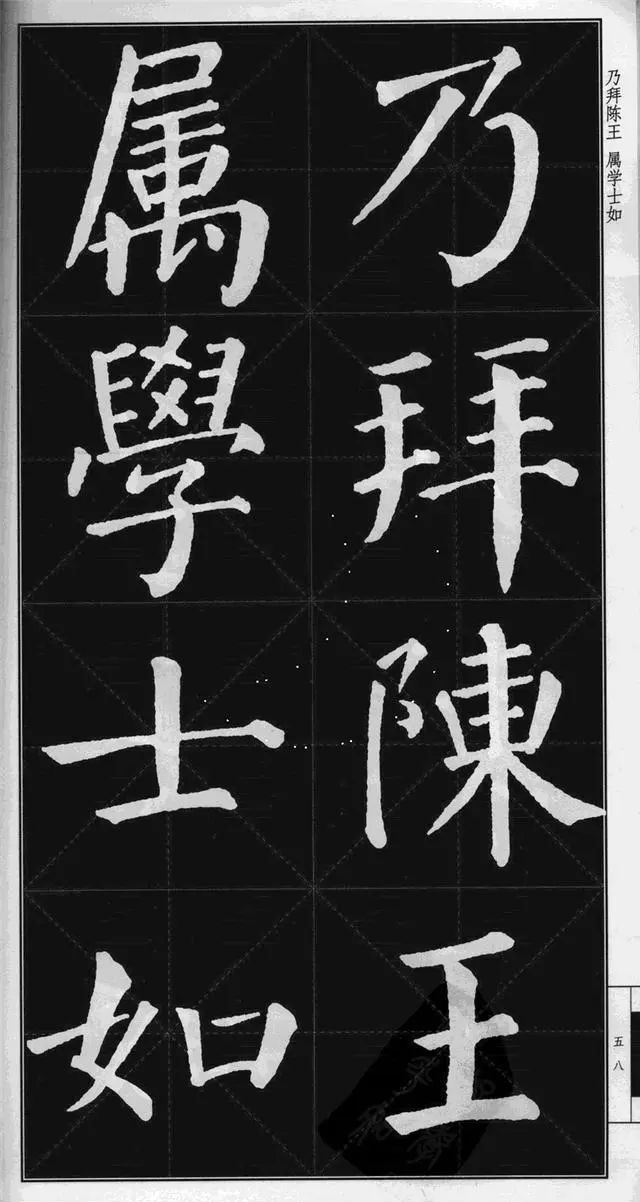 乃拜陳王
属學士如
乃拜陈王 属学士如
五八